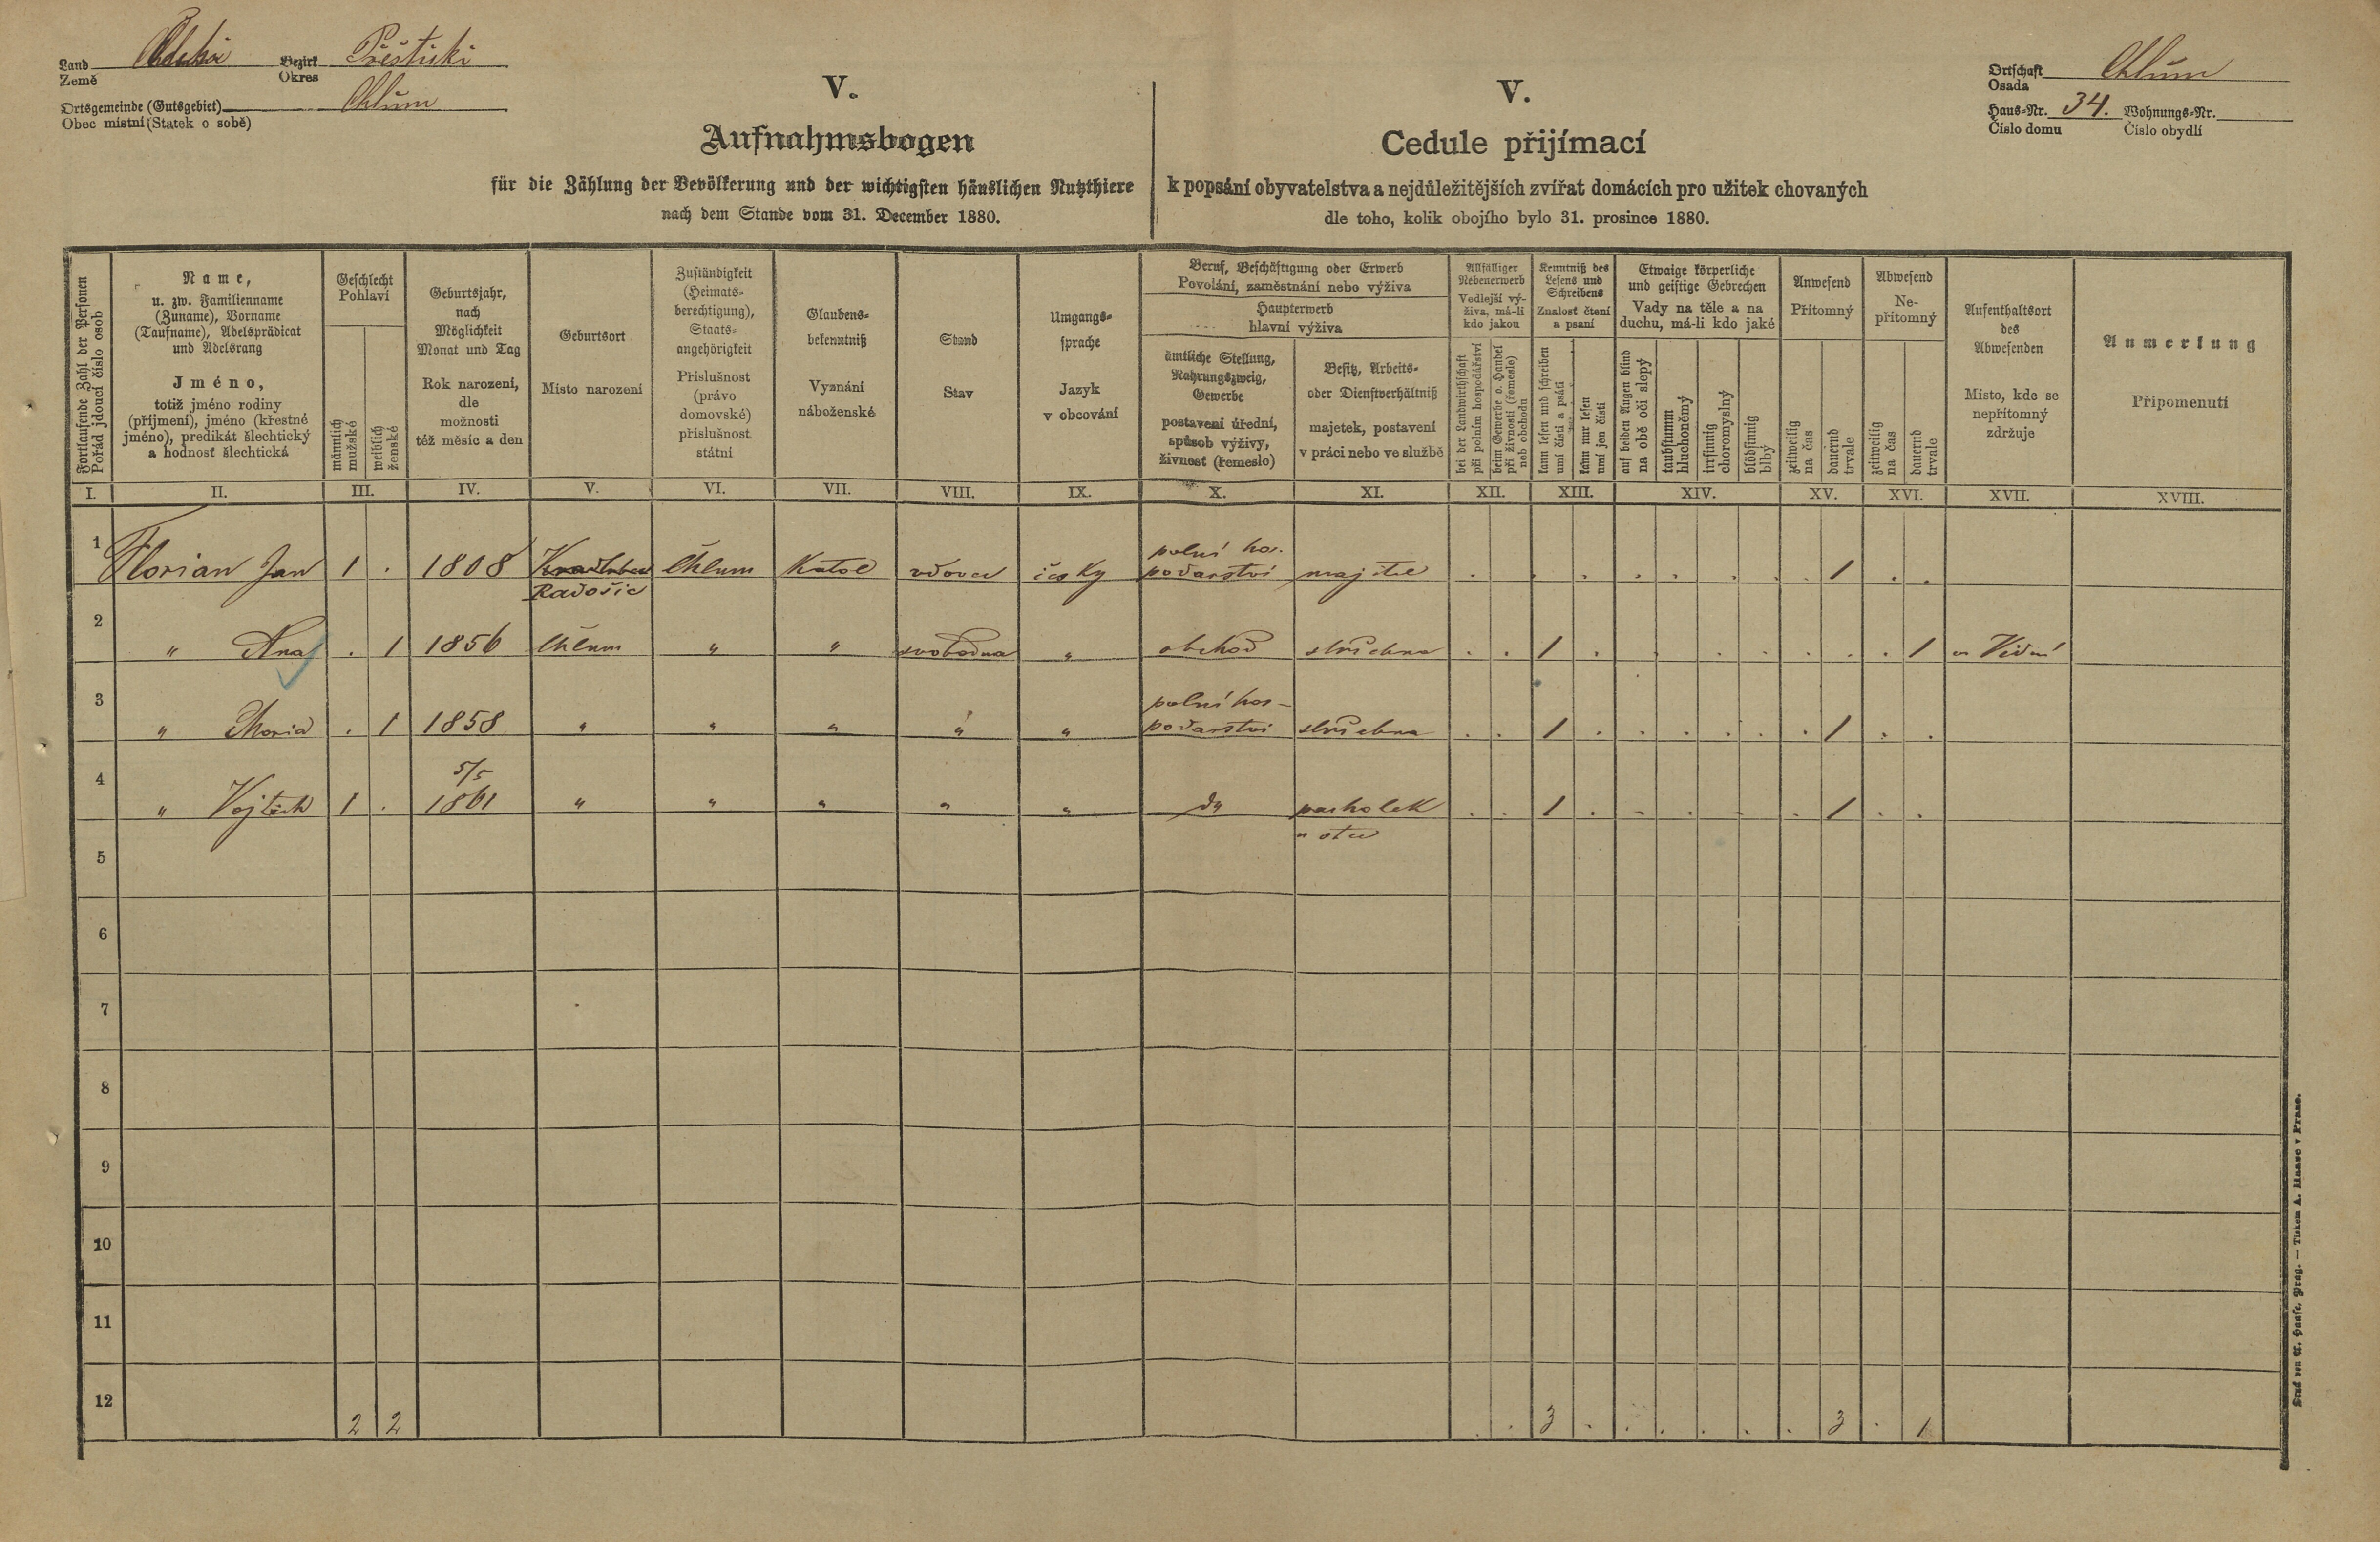 Land Bezirk Přeštický
Země Okres
Ortsgemeinde (Gutsgebiet) Chlum
Obec místní (Statek o sobě)
V.
Aufnahmsbogen
für die Zählung der Bevölkerung und der wichtigsten häuslichen Nutzthiere
nach dem Stande vom 31. December 1880.
V.
Cedule přijímací
k popsání obyvatelstva a nejdůležitějších zvířat domácích pro užitek chovaných
dle toho, kolik obojího bylo 31. prosince 1880.
Ortschaft Chlum
Osada
Haus-Nr. 34. Wohnungs-Nr.
Číslo domu Číslo obydlí
Fortlaufende Zahl der Personen
Pořád jdoucí číslo osob
Name,
u. zw. Familienname
(Zuname), Vorname
(Taufname), Adelsprädicat
und Adelsrang
Jméno,
totiž jméno rodiny
(příjmení), jméno (křestné
jméno), predikát šlechtický
a hodnosť šlechtická
Geschlecht
Pohlaví
männlich
mužské
weiblich
ženské
Geburtsjahr,
nach
Möglichkeit
Monat und Tag
Rok narození,
dle
možnosti
též měsíc a den
Geburtsort
Místo narození
Zuständigkeit
(Heimats-
berechtigung),
Staats-
angehörigkeit
Příslušnost
(právo
domovské)
příslušnost
státní
Glaubens-
bekenntniß
Vyznání
náboženské
Stand
Stav
Umgangs-
sprache
Jazyk
v obcování
Beruf, Beschäftigung oder Erwerb
Povolání, zaměstnání nebo výživa
Haupterwerb
hlavní výživa
ämtliche Stellung,
Nahrungszweig,
Gewerbe
postavení úřední,
spůsob výživy,
živnost (řemeslo)
Besitz, Arbeits-
oder Dienstverhältniß
majetek, postavení
v práci nebo ve službě
Allfälliger
Nebenerwerb
Vedlejší vý-
živa, má-li
kdo jakou
bei der Landwirthschaft
při polním hospodářství
beim Gewerbe o. Handel
při živnosti (řemesle)
neb obchodu
Kenntniß des
Lesens und
Schreibens
Znalost čtení
a psaní
kann lesen und schreiben
umí čísti a psáti
kann nur lesen
umí jen čísti
Etwaige körperliche
und geistige Gebrechen
Vady na těle a na
duchu, má-li kdo jaké
auf beiden Augen blind
na obě oči slepý
taubstumm
hluchoněmý
irrsinnig
choromyslný
blödsinnig
blbý
Anwesend
Přítomný
zeitweilig
na čas
dauernd
trvale
Abwesend
Ne-
přítomný
zeitweilig
na čas
dauernd
trvale
Aufenthaltsort
des
Abwesenden
Místo, kde se
nepřítomný
zdržuje
Anmerkung
Připomenutí
I. II. III. IV. V. VI. VII. VIII. IX. X. XI. XII. XIII. XIV. XV. XVI. XVII. XVIII.
polní ho.
1 Florian Jan 1 . 1808 Chlum Katol vdovec česky podarství majitel . . . . . . . . 1 . .
Radošic
2 " Ana . 1 1856 Chlum " " svobodna " obchod služebna . . 1 . . . . . . . . 1 ve Vídni
polní hos-
3 " Maria . 1 1858 " " " " " podarství služebna . . 1 . . . . . . 1 . .
5/5
4 " Vojtěch 1 . 1861 " " " " " dto pacholek . . 1 . . . . . 1 . .
u otce
5
6
7
8
9
10
11
12 2 2 . . 3 . . . . . . 3 . 1
Druck von A. Haase, Prag. — Tiskem A. Haase v Praze.